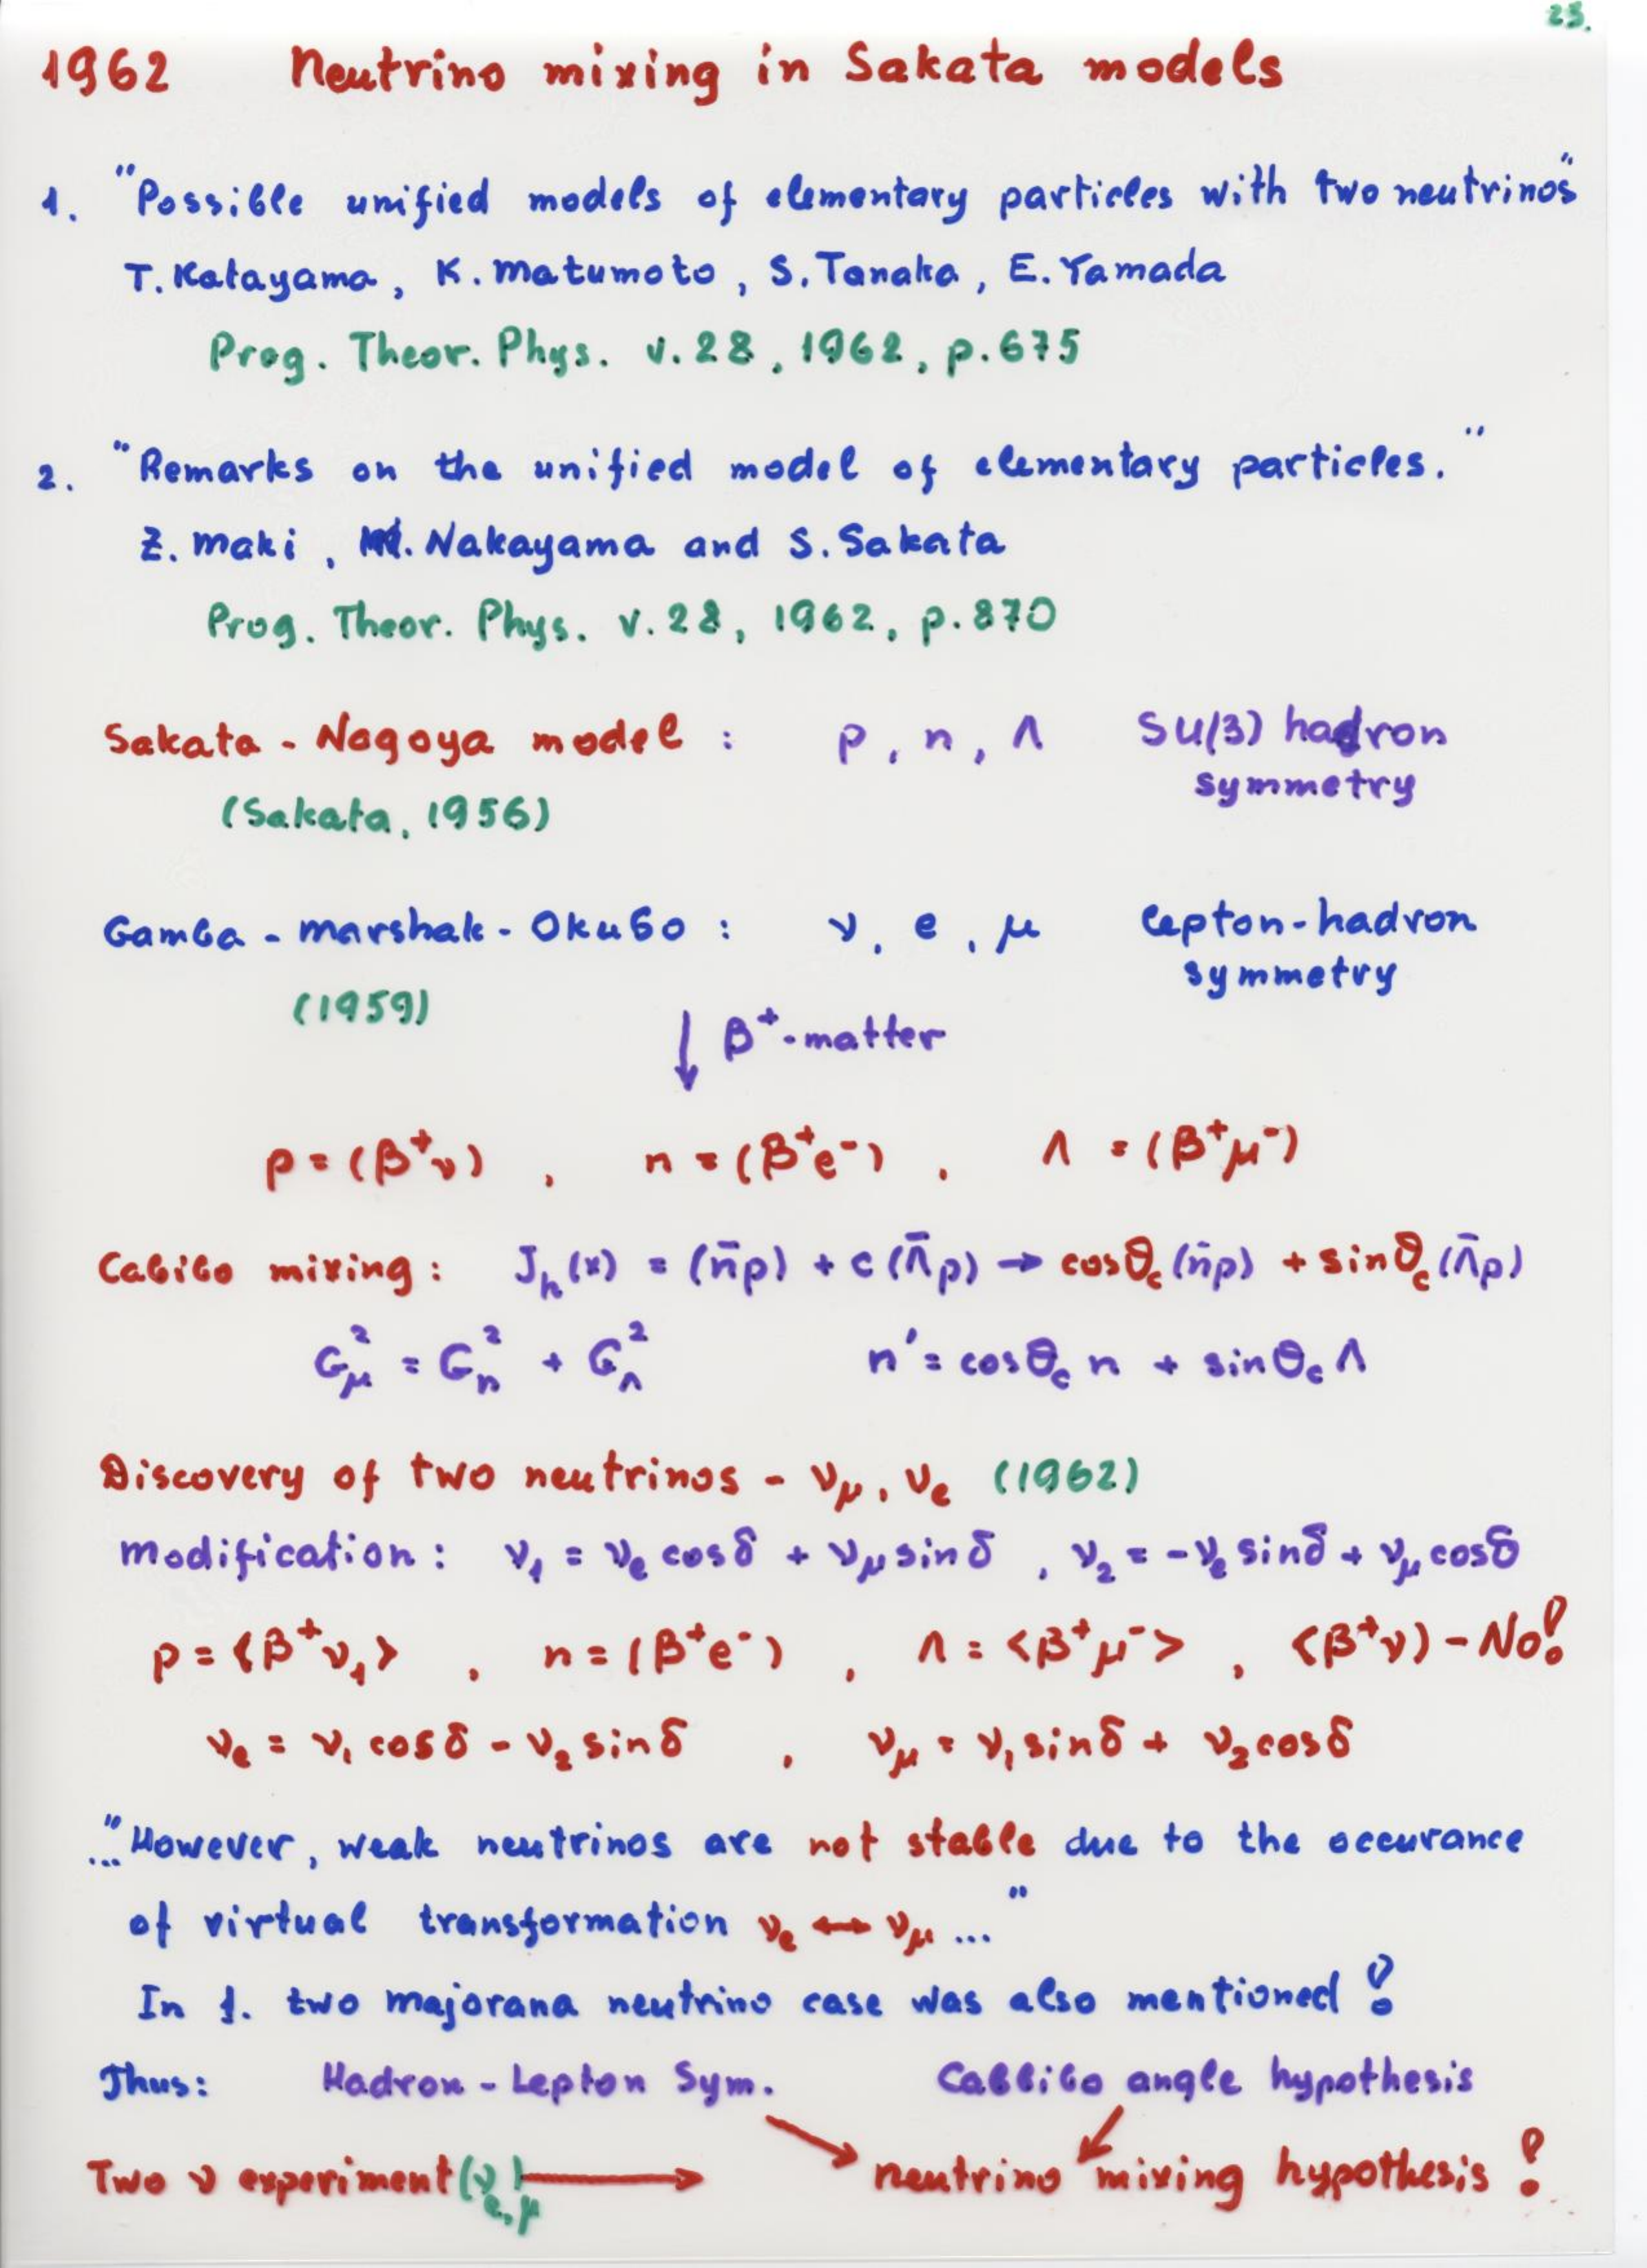 23.
1962 Neutrino mixing in Sakata models
1. "Possible unified models of elementary particles with two neutrinos"
T. Katayama, K. Matumoto, S. Tanaka, E. Yamada
Prog. Theor. Phys. v.28, 1962, p.675
2. "Remarks on the unified model of elementary particles."
Z. Maki, M. Nakayama and S. Sakata
Prog. Theor. Phys. v.28, 1962, p.870
Sakata - Nagoya model : p, n, Λ SU(3) hadron
symmetry
(Sakata, 1956)
Gamba - Marshak - Okubo : ν, e, μ lepton-hadron
symmetry
(1959)
↓ β⁺-matter
p = (β⁺ν) , n = (β⁺e⁻) , Λ = (β⁺μ⁻)
Cabibo mixing : J_h(x) = (n̄p) + c(Λ̄p) → cosθ_c (n̄p) + sinθ_c (Λ̄p)
G_μ² = G_n² + G_Λ² n' = cosθ_c n + sinθ_c Λ
Discovery of two neutrinos - ν_μ, ν_e (1962)
modification : ν₁ = ν_e cosδ + ν_μ sinδ , ν₂ = -ν_e sinδ + ν_μ cosδ
p = <β⁺ν₁> , n = (β⁺e⁻) , Λ = <β⁺μ⁻> , <β⁺ν) - No!
ν_e = ν₁ cosδ - ν₂ sinδ , ν_μ = ν₁ sinδ + ν₂ cosδ
..."However, weak neutrinos are not stable due to the occurance
of virtual transformation ν_e ↔ ν_μ ..."
In 1. two majorana neutrino case was also mentioned !
Thus: Hadron - Lepton Sym. Cabbibo angle hypothesis
Two ν experiment (ν_e,μ) → neutrino mixing hypothesis !